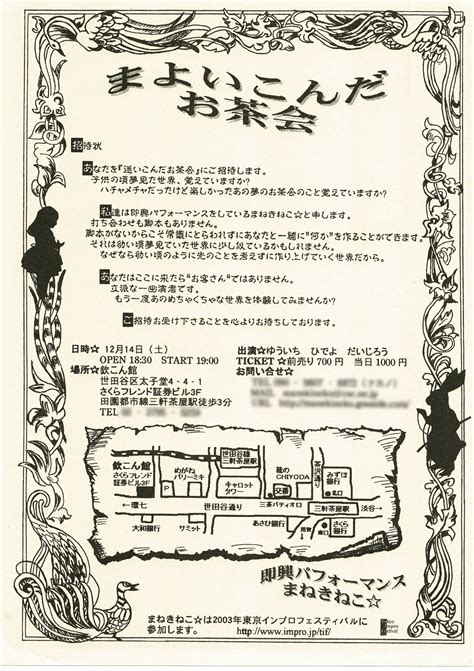 まよいこんだ
お茶会
招待状
あなたを『迷いこんだお茶会』にご招待します。
子供の頃夢見た世界、覚えていますか?
ハチャメチャだったけど楽しかったあの夢のお茶会のこと覚えていますか?
私達は即興パフォーマンスをしているまねきねこ☆と申します。
打ち合わせも脚本もありません。
脚本がないからこそ常識にとらわれずにあなたと一緒に"何か"を作ることができます。
それは幼い頃夢見ていた世界に少し似ているかもしれません。
なぜなら幼い頃のように先のことを考えずに作り上げていく世界だから。
あなたはここに来たら"お客さん"ではありません。
立派な一出演者です。
もう一度あのめちゃくちゃな世界を体験してみませんか?
ご招待お受け下さることを心よりお待ちしております。
日時☆ 12月14日(土)
OPEN 18:30 START 19:00
場所☆欽こん館
世田谷区太子堂4-4-1
さくらフレンド証券ビル3F
田園都市線三軒茶屋駅徒歩3分
TEL
出演☆ゆういち ひでよ だいじろう
TICKET☆前売り700円 当日1000円
お問い合せ☆
TEL
MAIL
URL
欽こん館
さくらフレンド
証券ビル3F
めがね
パリーミキ
P
世田谷線
三軒茶屋駅
キャロット
タワー
靴の
CHIYODA
交番
茶沢通り
みずほ
銀行
北口
←環七
世田谷通り
三茶パティオ口
三軒茶屋駅
渋谷→
大和銀行
サミット
あさひ銀行
さくら
銀行
南口
即興パフォーマンス
まねきねこ☆
まねきねこ☆は2003年東京インプロフェスティバルに
参加します。 http://www.impro.jp/tif/
Tokyo
Impro
Festival